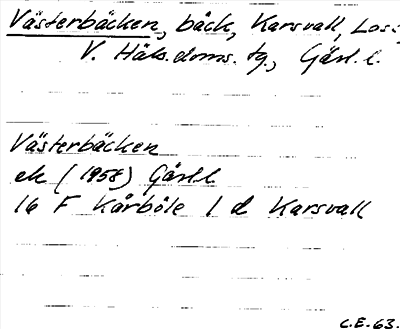 Västerbäcken, bäck, Karsvall, Los s
V. Häls. doms. tg., Gävl. l.
Västerbäcken
ek (1958) Gävl.l
16 F Kårböle 1 d Karsvall
C.E. 63.